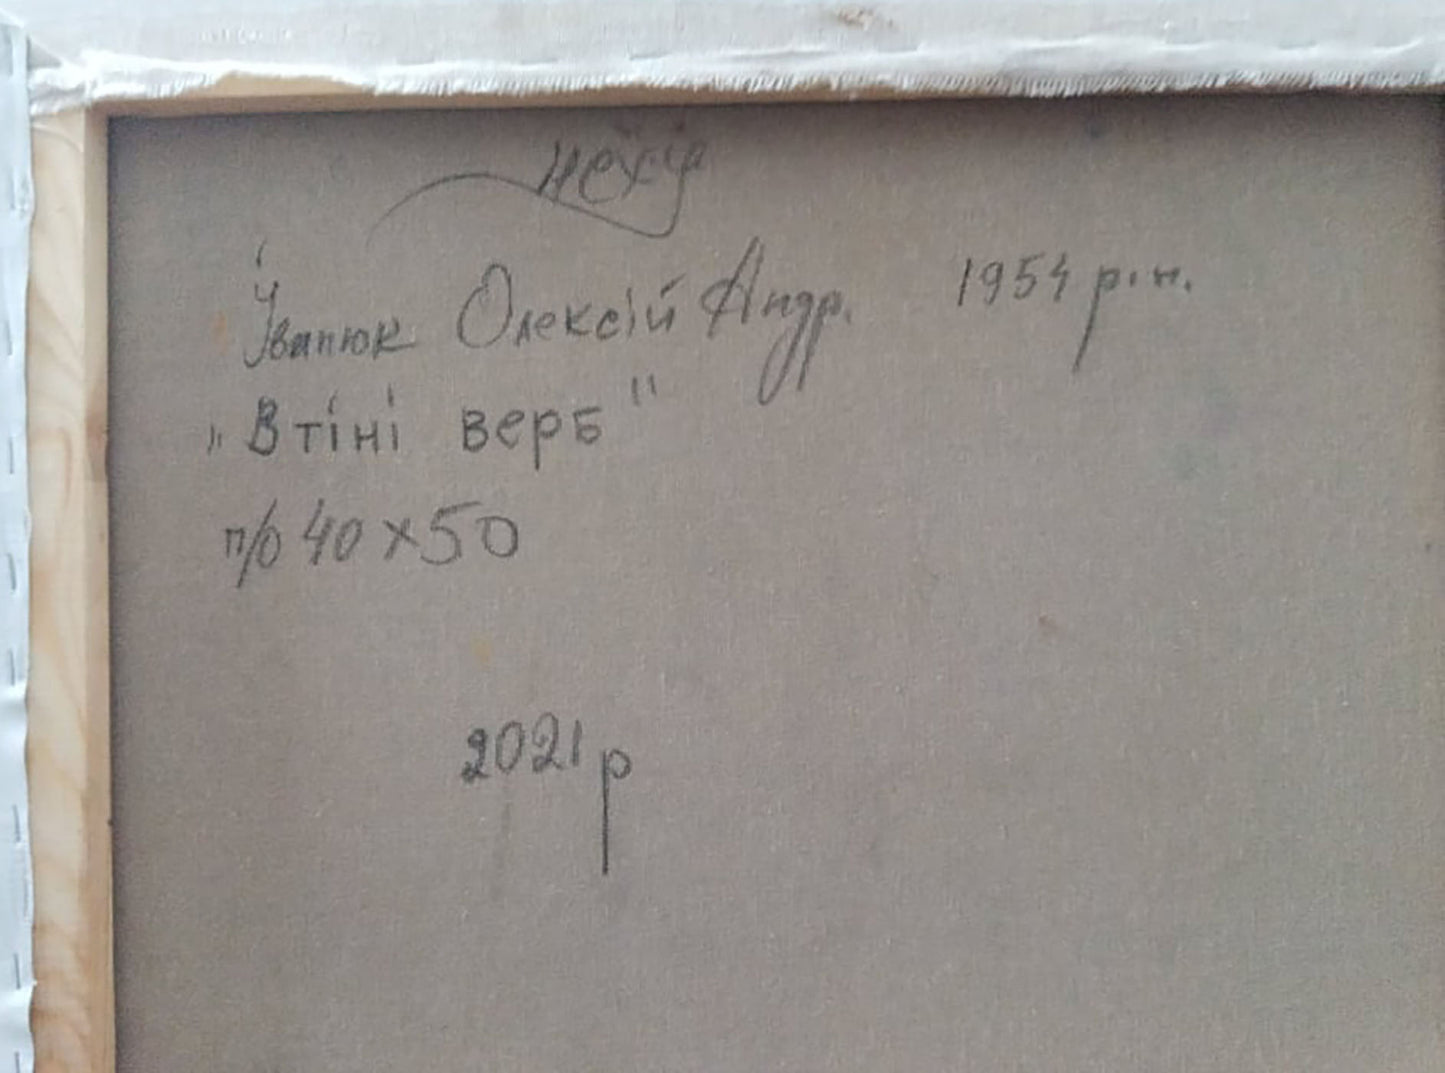 Іванюк Олексій Андр. 1954 р.н.
„В тіні верб"
п/о 40х50
2021р